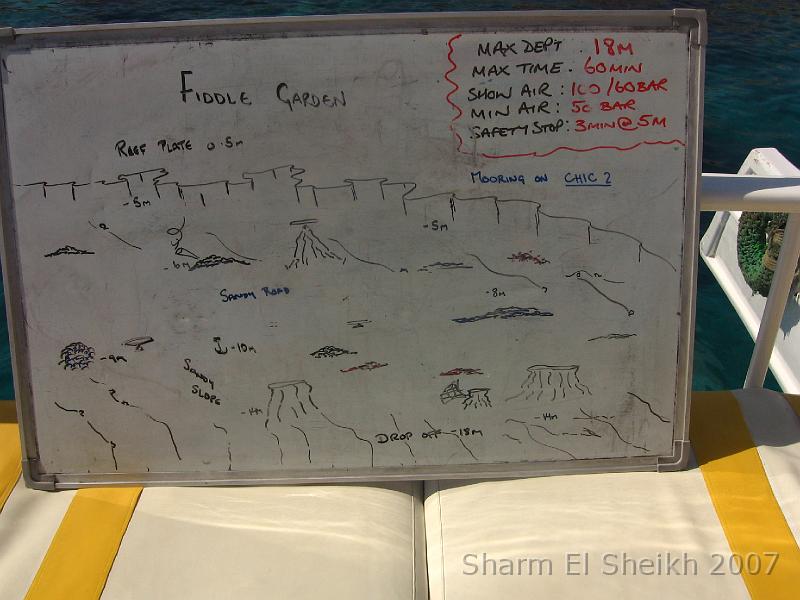 MAX DEPT 18M
MAX TIME. 60MIN
SHOW AIR: 100/60BAR
MIN AIR: 50 BAR
SAFETY STOP: 3MIN@5M
FIDDLE GARDEN
REEF PLATE 0.5m
MOORING ON CHIC 2
-5m
-5m
-6m
SANDY ROAD
-8m
-10m
-9m
SANDY
SLOPE
-14m
-14m
DROP OFF -18M
Sharm El Sheikh 2007